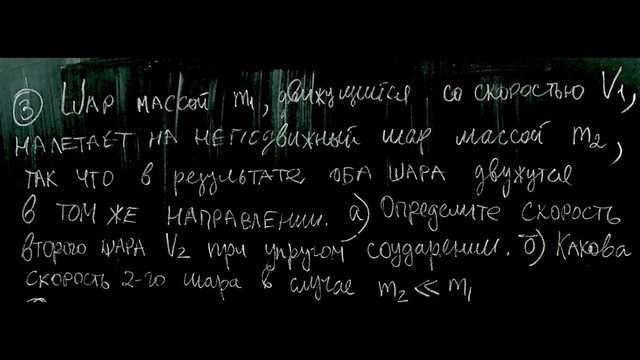 ③ Шар массой m₁, движущийся со скоростью V₁,
налетает на неподвижный шар массой m₂,
так что в результате оба шара движутся
в том же направлении. а) Определите скорость
второго шара V₂ при упругом соударении. б) Какова
скорость 2-го шара в случае m₂ ≪ m₁